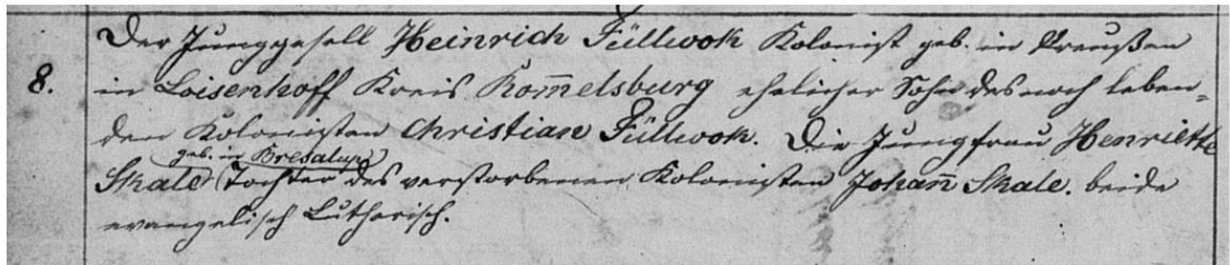 Der Junggesell Heinrich Füllwok Kolonist geb. in Preußen
8. in Loisenhoff Kreis Rom̅elsburg ehelicher Sohn des noch leben=
den Kolonisten Christian Füllwok. Die Jungfrau Henriette
geb. in Bresalupi
Skale Tochter des verstorbenen Kolonisten Johan̅ Skale. beide
evangelisch Lutherisch.